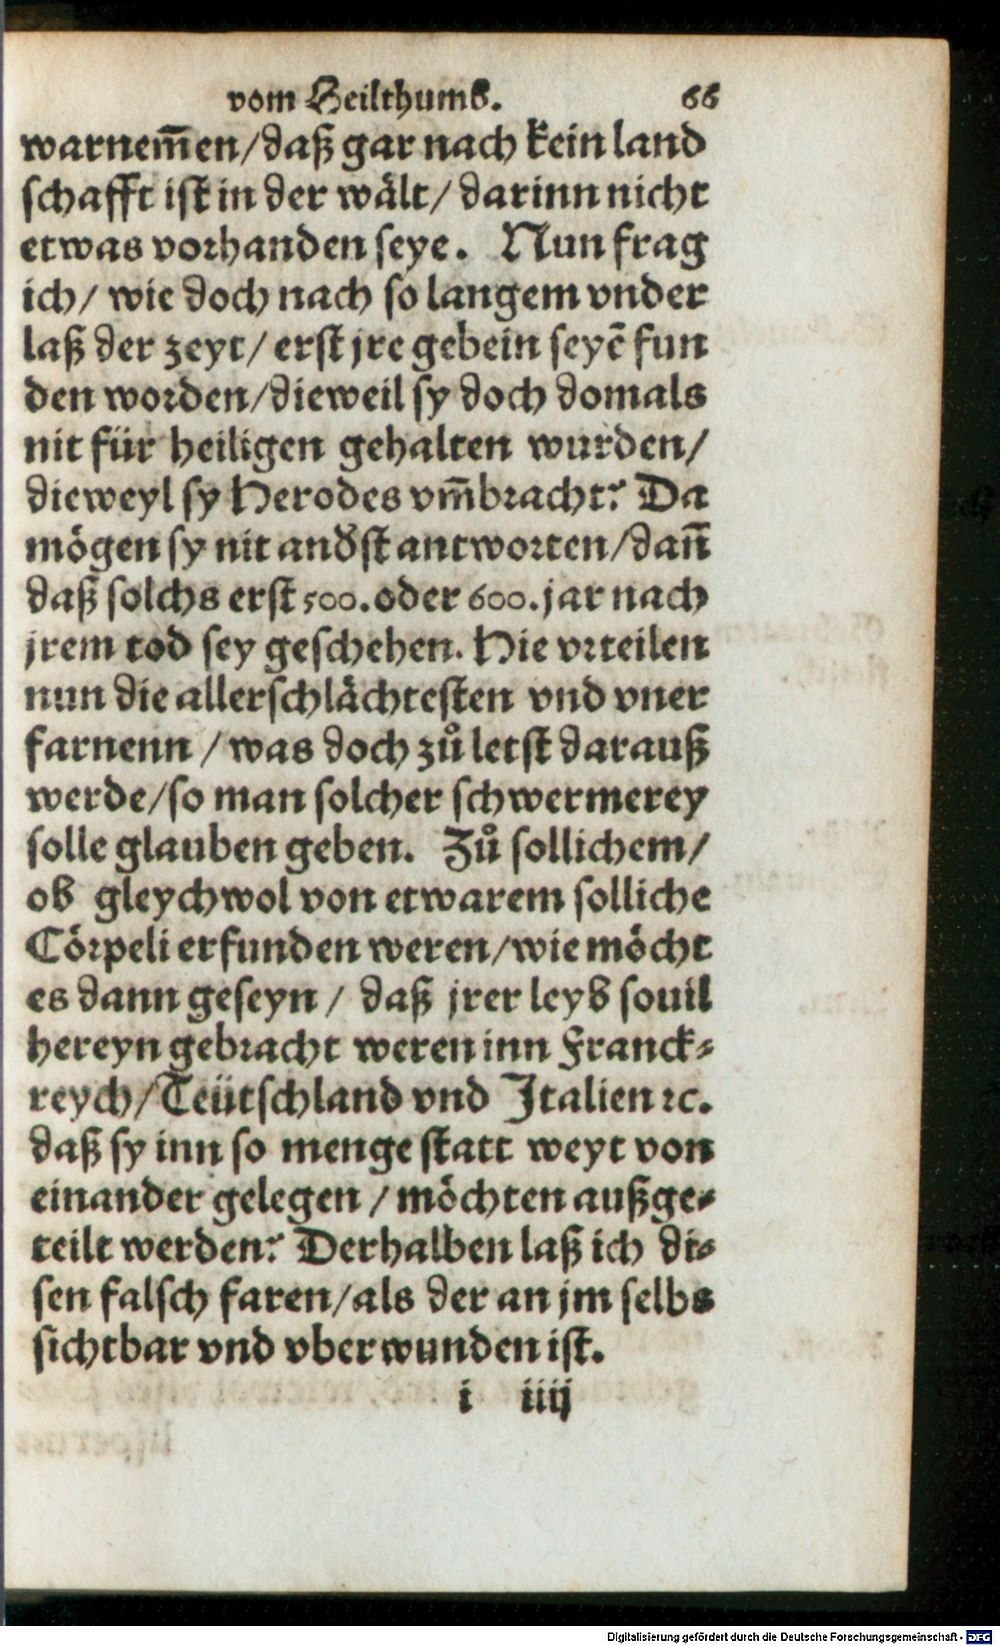 vom Heilthumb. 66
warnem̄en/daß gar nach kein land
schafft ist in der wält/ darinn nicht
etwas vorhanden seye. Nun frag
ich/ wie doch nach so langem vnder
laß der zeyt/ erst jre gebein seyē fun
den worden/dieweil sy doch domals
nit für heiligen gehalten wurden/
dieweyl sy Herodes vm̄bracht? Da
mögen sy nit anderst antworten/dañ
daß solchs erst 500. oder 600. jar nach
jrem tod sey geschehen. Hie vrteilen
nun die allerschlächtesten vnd vner
farnenn / was doch zů letst darauß
werde/so man solcher schwermerey
solle glauben geben. Zů sollichem/
ob gleychwol von etwarem solliche
Cörpeli erfunden weren/wie möcht
es dann geseyn / daß jrer leyb souil
hereyn gebracht weren inn Franck⸗
reych/Teütschland vnd Italien ꝛc.
daß sy inn so menge statt weyt von
einander gelegen / möchten außge⸗
teilt werden? Derhalben laß ich di⸗
sen falsch faren/als der an jm selbs
sichtbar vnd vberwunden ist.
i iiij
Digitalisierung gefördert durch die Deutsche Forschungsgemeinschaft - DFG